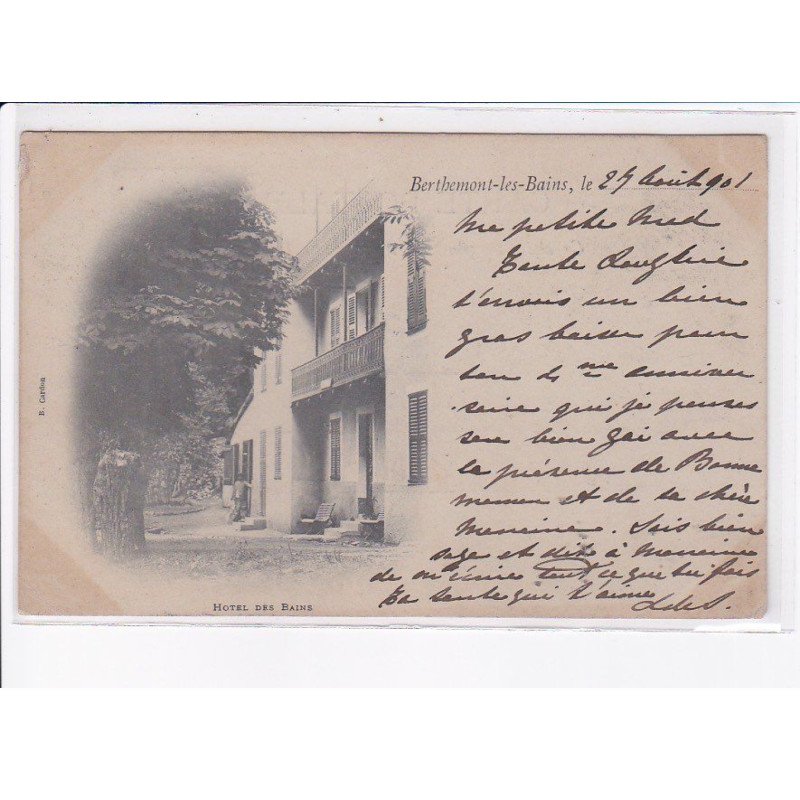 Berthemont-les-Bains, le 27 Août 901
Ma petite
Tante
t'envois un bien
gros baiser pour
ton 4me anniver
saire qui je penses
sera bien gai avec
la présence de Bonne
maman et de ta chère
Marraine. Sois bien
sage et dis à Marraine
de m'écrire tout ce que tu fais
Ta tante qui t'aime
B. Cardon
HOTEL DES BAINS